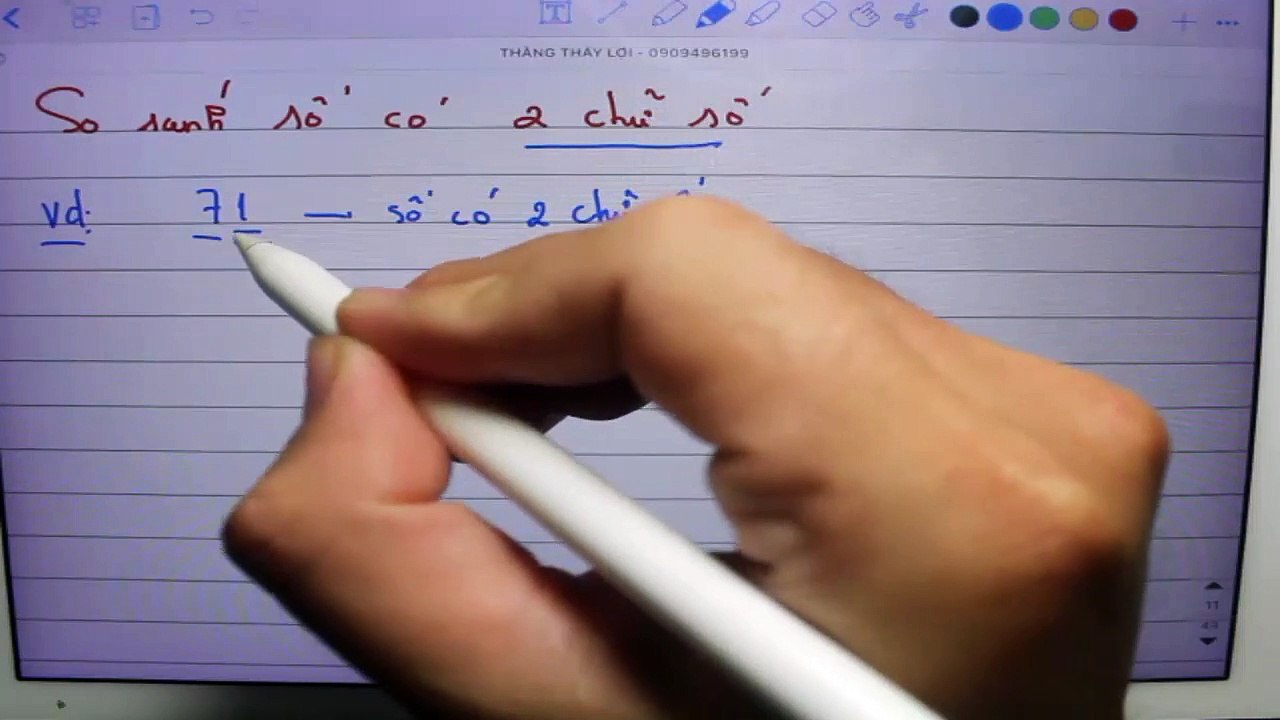 THẮNG THẦY LỢI - 0909496199
So sánh số có 2 chữ số
vd: 71 — số có 2 chữ
11